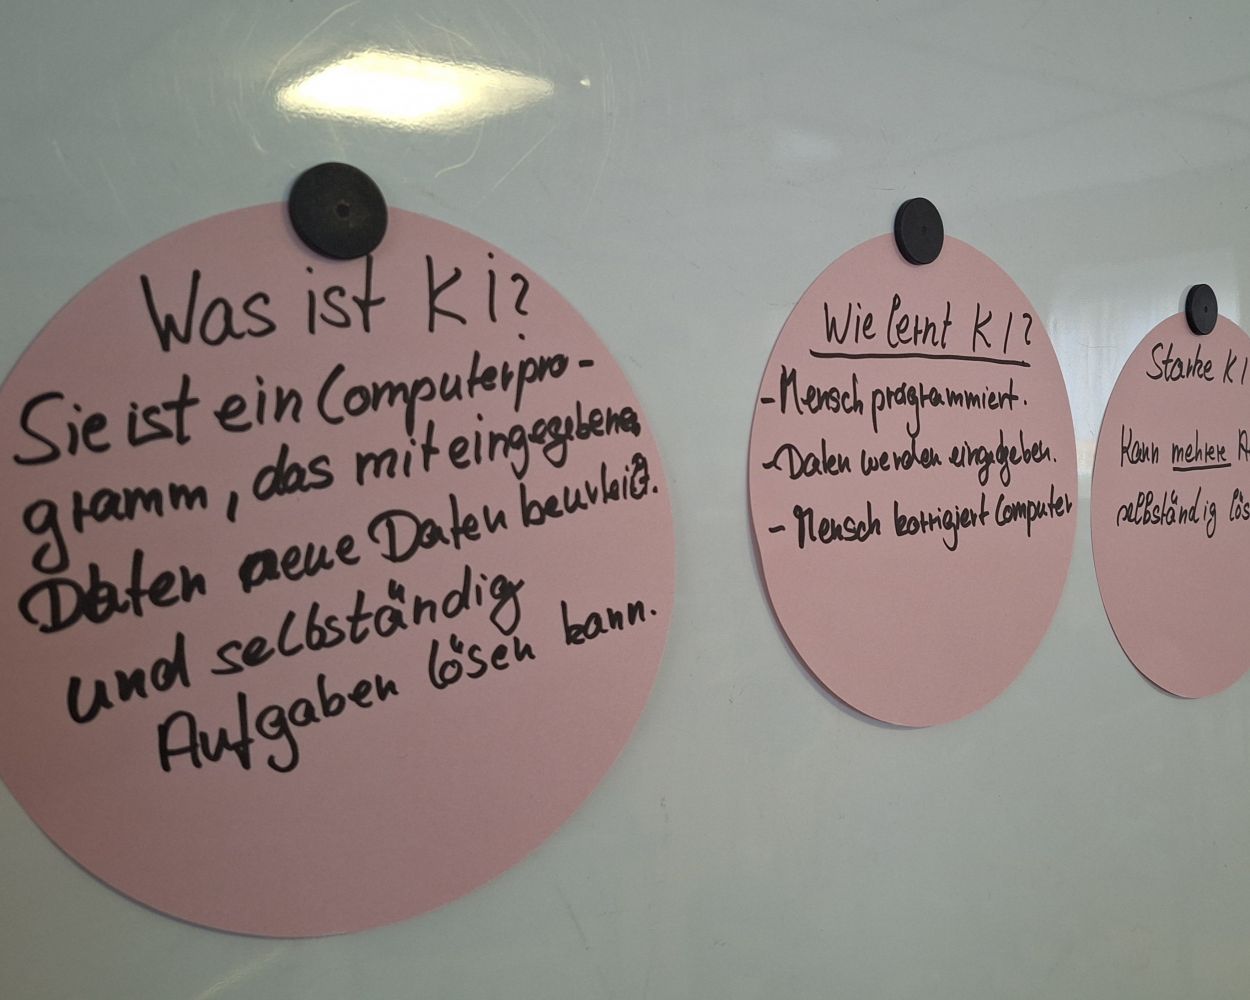 Was ist KI?
Sie ist ein Computerpro-
gramm, das mit eingegebenen
Daten neue Daten beurteilt.
und selbständig
Aufgaben lösen kann.
Wie lernt KI?
- Mensch programmiert.
- Daten werden eingegeben.
- Mensch korrigiert Computer
Starke KI
Kann mehrere A
selbständig lös